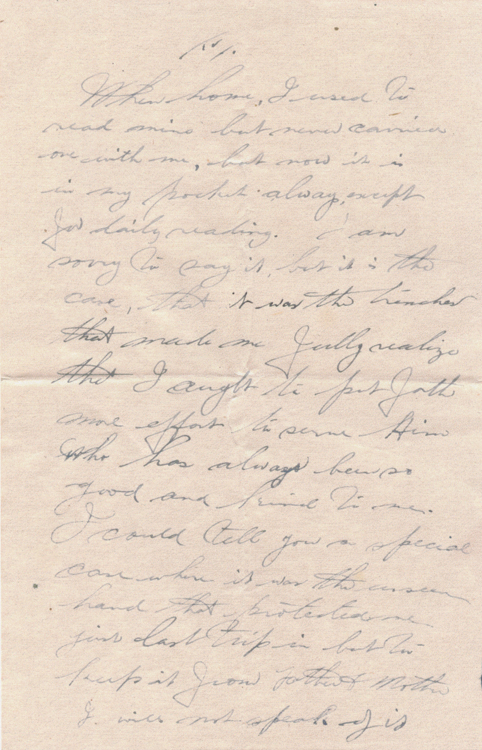 When home, I used to
read mine but never carried
one with me, but now it is
in my pocket always except
for daily reading. I am
sorry to say it, but it is the
case, that it was the trenches
that made me fully realize
that I aught to put forth
more effort to serve Him
who has always been so
good and kind to me.
I could tell you a special
case where it was the unseen
hand that protected me
just last trip in but to
keep it from Father & Mother
I will not speak of it